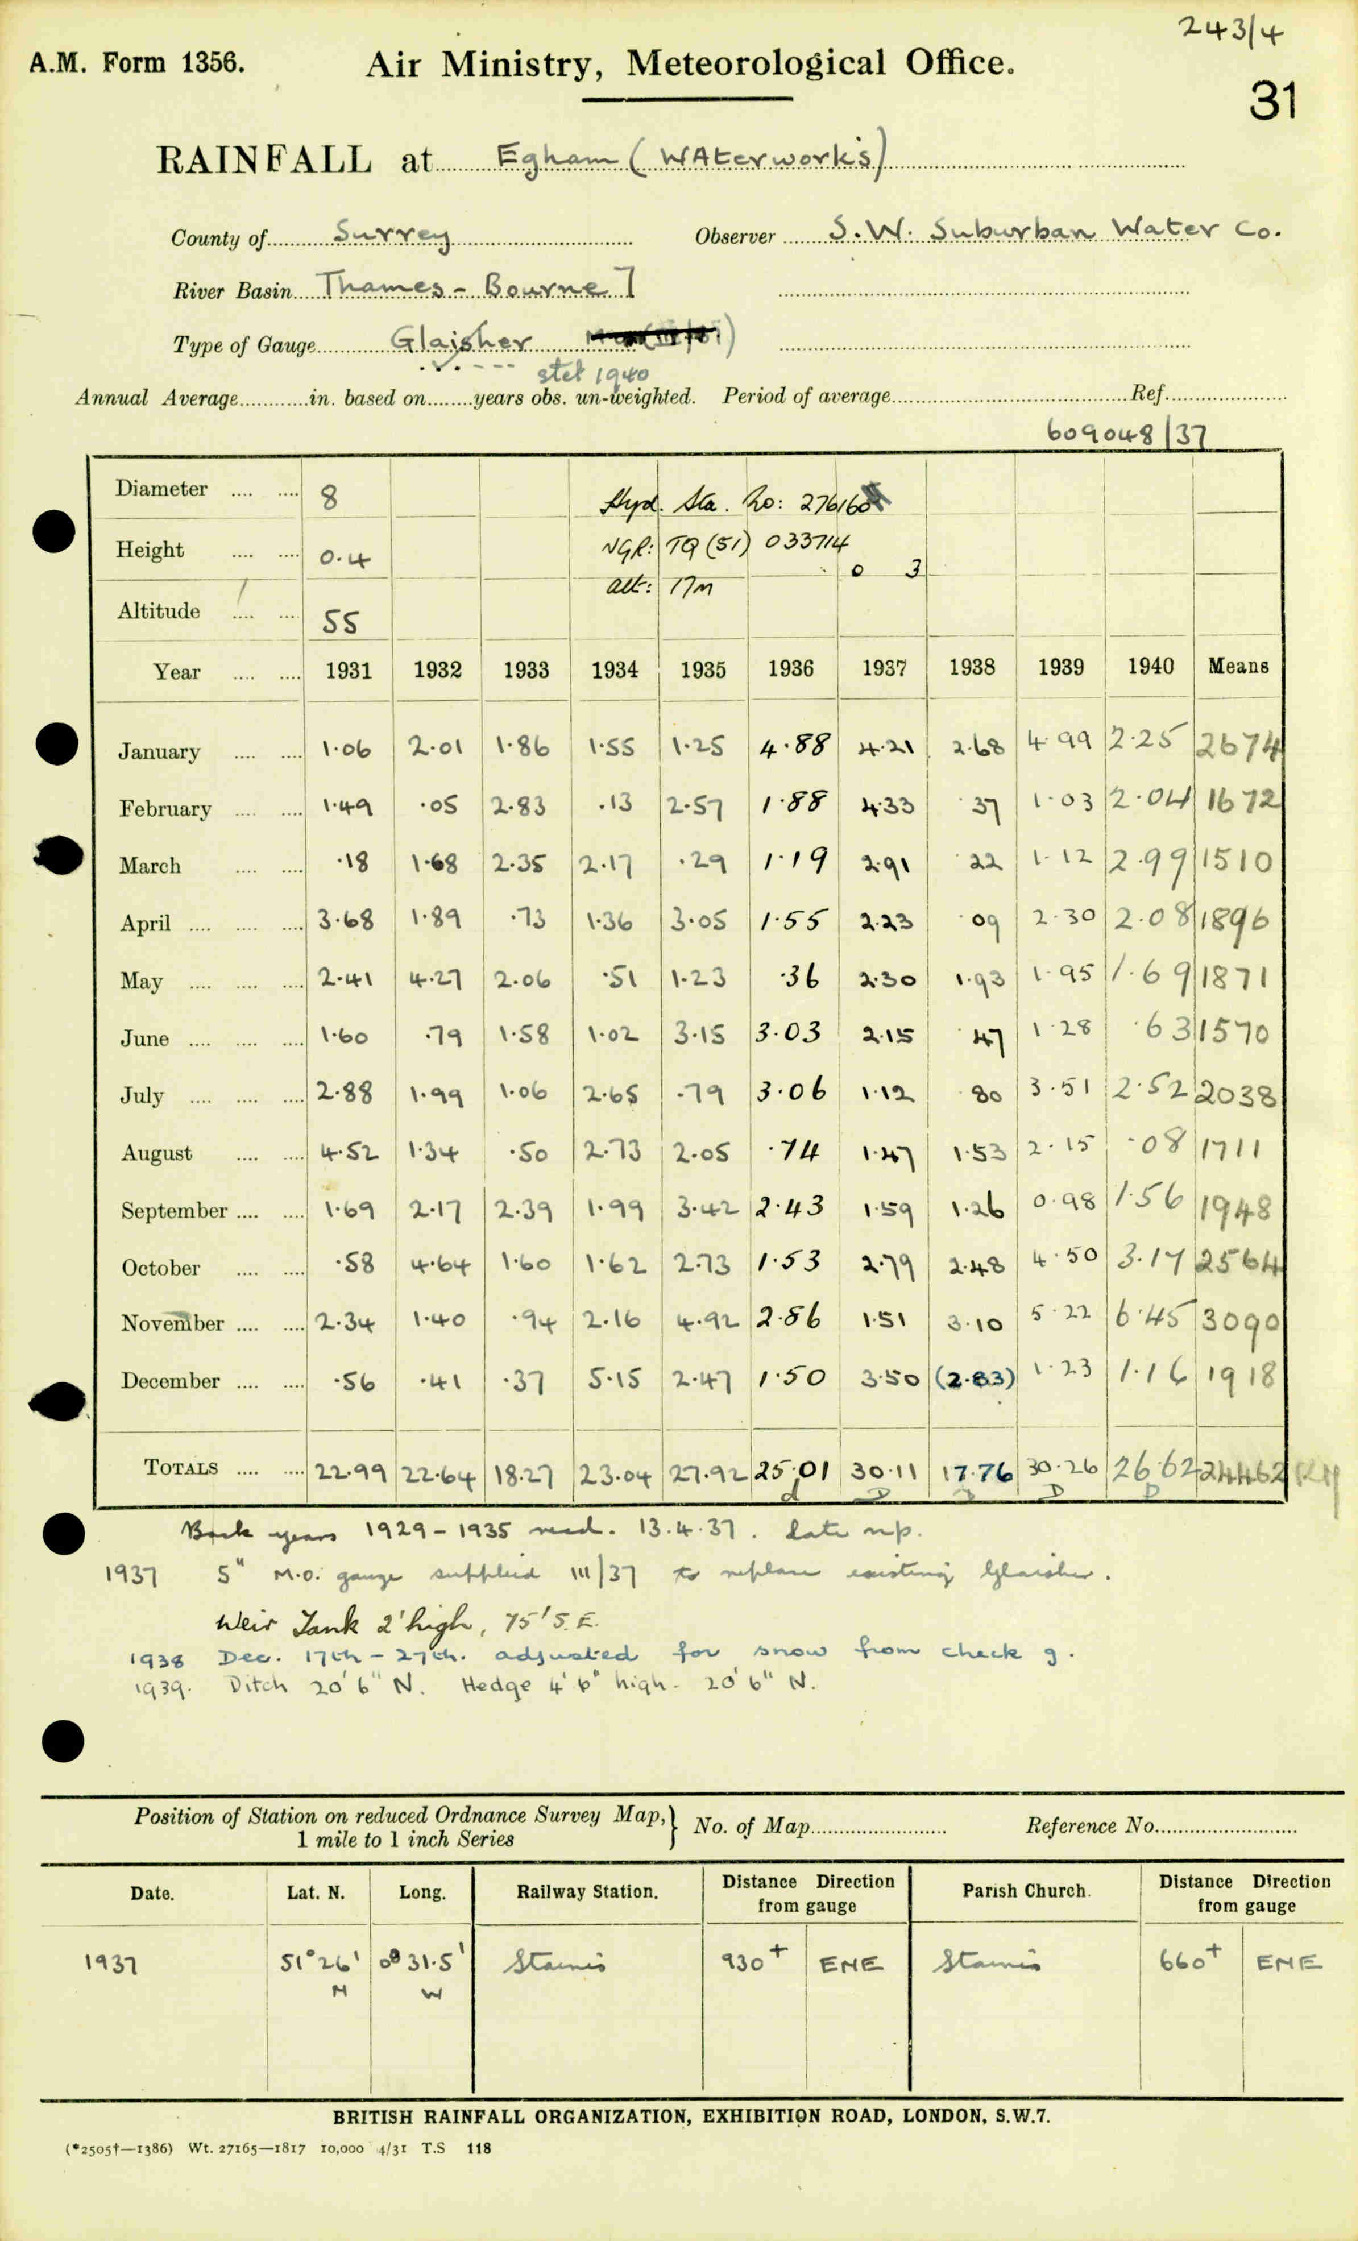 243/4
A.M. Form 1356. Air Ministry, Meteorological Office.
31
RAINFALL at Egham (Waterworks)
County of Surrey Observer S.W. Suburban Water Co.
River Basin Thames - Bourne]
Type of Gauge Glaisher
stet 1940
Annual Average in. based on years obs. un-weighted. Period of average Ref.
609048/37
Diameter 8 Hyd. Sta. No: 276160
Height 0.4 NGR: TQ (51) 033714
0 3
Altitude 55 alt: 17m
Year 1931 1932 1933 1934 1935 1936 1937 1938 1939 1940 Means
January 1.06 2.01 1.86 1.55 1.25 4.88 4.21 2.68 4.99 2.25 2674
February 1.49 .05 2.83 .13 2.57 1.88 4.33 .37 1.03 2.04 1672
March .18 1.68 2.35 2.17 .29 1.19 2.91 .22 1.12 2.99 1510
April 3.68 1.89 .73 1.36 3.05 1.55 2.23 .09 2.30 2.08 1896
May 2.41 4.27 2.06 .51 1.23 .36 2.30 1.93 1.95 1.69 1871
June 1.60 .79 1.58 1.02 3.15 3.03 2.15 .47 1.28 .63 1570
July 2.88 1.99 1.06 2.65 .79 3.06 1.12 .80 3.51 2.52 2038
August 4.52 1.34 .50 2.73 2.05 .74 1.47 1.53 2.15 .08 1711
September 1.69 2.17 2.39 1.99 3.42 2.43 1.59 1.26 0.98 1.56 1948
October .58 4.64 1.60 1.62 2.73 1.53 2.79 2.48 4.50 3.17 2564
November 2.34 1.40 .94 2.16 4.92 2.86 1.51 3.10 5.22 6.45 3090
December .56 .41 .37 5.15 2.47 1.50 3.50 (2.83) 1.23 1.16 1918
TOTALS 22.99 22.64 18.27 23.04 27.92 25.01 30.11 17.76 30.26 26.62 24462
Back years 1929-1935 recd. 13.4.37. late rep.
1937 5" M.O. gauge supplied III/37 to replace existing Glaisher.
Weir Tank 2' high, 75' S.E.
1938 Dec. 17th - 27th. adjusted for snow from check g.
1939. Ditch 20' 6" N. Hedge 4' 6" high. 20' 6" N.
Position of Station on reduced Ordnance Survey Map,} No. of Map Reference No.
1 mile to 1 inch Series
Date. Lat. N. Long. Railway Station. Distance from gauge Direction Parish Church. Distance from gauge Direction
1937 51° 26' N 0° 31.5' W Staines 930+ ENE Staines 660+ ENE
BRITISH RAINFALL ORGANIZATION, EXHIBITION ROAD, LONDON, S.W.7.
(*2505†—1386) Wt. 27165—1817 10,000 4/31 T.S 118